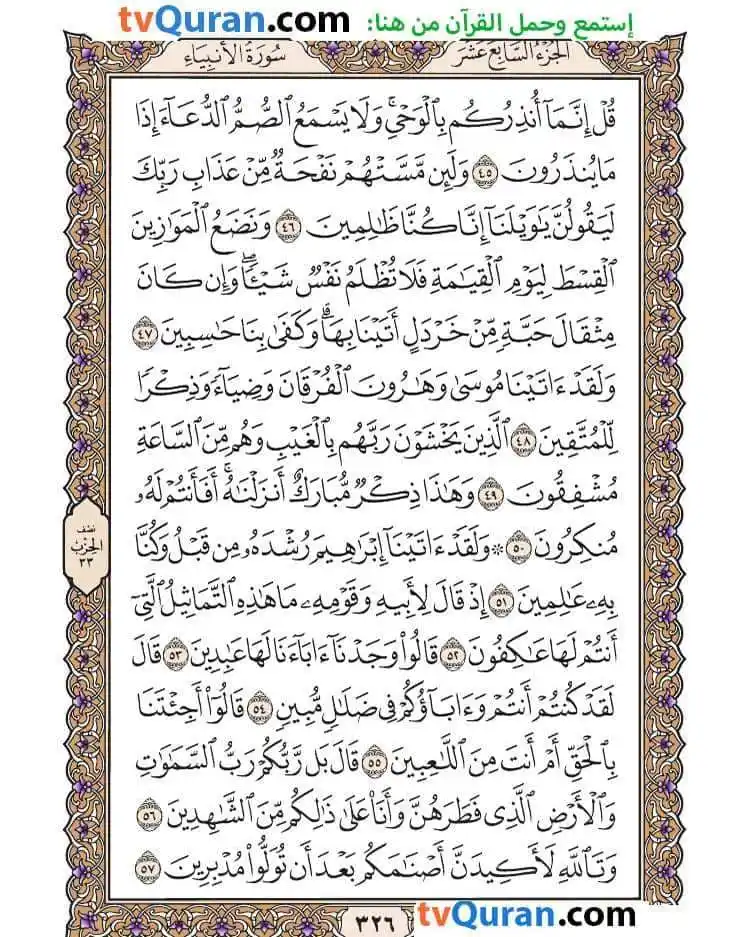 tvQuran.com إستمع وحمل القرآن من هنا:
الجزء السابع عشر
سورة الأنبياء
قُلْ إِنَّمَآ أُنذِرُكُم بِٱلْوَحْىِ ۚ وَلَا يَسْمَعُ ٱلصُّمُّ ٱلدُّعَآءَ إِذَا
مَا يُنذَرُونَ ٤٥ وَلَئِن مَّسَّتْهُمْ نَفْحَةٌ مِّنْ عَذَابِ رَبِّكَ
لَيَقُولُنَّ يَٰوَيْلَنَآ إِنَّا كُنَّا ظَٰلِمِينَ ٤٦ وَنَضَعُ ٱلْمَوَٰزِينَ
ٱلْقِسْطَ لِيَوْمِ ٱلْقِيَٰمَةِ فَلَا تُظْلَمُ نَفْسٌ شَيْـًٔا ۖ وَإِن كَانَ
مِثْقَالَ حَبَّةٍ مِّنْ خَرْدَلٍ أَتَيْنَا بِهَا ۗ وَكَفَىٰ بِنَا حَٰسِبِينَ ٤٧
وَلَقَدْ ءَاتَيْنَا مُوسَىٰ وَهَٰرُونَ ٱلْفُرْقَانَ وَضِيَآءً وَذِكْرًا
لِّلْمُتَّقِينَ ٤٨ ٱلَّذِينَ يَخْشَوْنَ رَبَّهُم بِٱلْغَيْبِ وَهُم مِّنَ ٱلسَّاعَةِ
مُشْفِقُونَ ٤٩ وَهَٰذَا ذِكْرٌ مُّبَارَكٌ أَنزَلْنَٰهُ ۚ أَفَأَنتُمْ لَهُۥ
مُنكِرُونَ ٥٠ ۞ وَلَقَدْ ءَاتَيْنَآ إِبْرَٰهِيمَ رُشْدَهُۥ مِن قَبْلُ وَكُنَّا
بِهِۦ عَٰلِمِينَ ٥١ إِذْ قَالَ لِأَبِيهِ وَقَوْمِهِۦ مَا هَٰذِهِ ٱلتَّمَاثِيلُ ٱلَّتِىٓ
أَنتُمْ لَهَا عَٰكِفُونَ ٥٢ قَالُوا۟ وَجَدْنَآ ءَابَآءَنَا لَهَا عَٰبِدِينَ ٥٣ قَالَ
لَقَدْ كُنتُمْ أَنتُمْ وَءَابَآؤُكُمْ فِى ضَلَٰلٍ مُّبِينٍ ٥٤ قَالُوٓا۟ أَجِئْتَنَا
بِٱلْحَقِّ أَمْ أَنتَ مِنَ ٱللَّٰعِبِينَ ٥٥ قَالَ بَل رَّبُّكُمْ رَبُّ ٱلسَّمَٰوَٰتِ
وَٱلْأَرْضِ ٱلَّذِى فَطَرَهُنَّ وَأَنَا۠ عَلَىٰ ذَٰلِكُم مِّنَ ٱلشَّٰهِدِينَ ٥٦
وَتَٱللَّهِ لَأَكِيدَنَّ أَصْنَٰمَكُم بَعْدَ أَن تُوَلُّوا۟ مُدْبِرِينَ ٥٧
نصف
الحزب
٣٣
٣٢٦
tvQuran.com